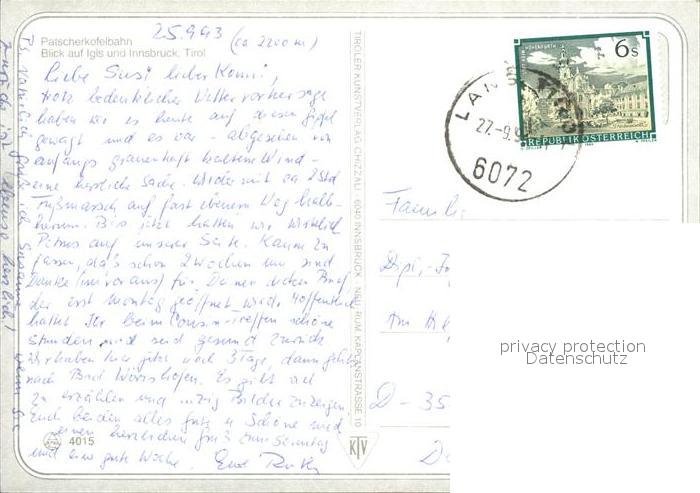 25.9.93 (ca 2200 m)
Patscherkofelbahn
Blick auf Igls und Innsbruck, Tirol
Liebe Susi lieber Konni,
trotz bedenklicher Wettervorhersage
haben wir es heute auf diesen Gipfel
gewagt und es war - abgesehen von
anfangs grauenhaft kaltem Wind -
eine herrliche Sache. Wieder mit ca 2 Std
Fußmarsch auf fast ebenem Weg halb-
herum. Bis jetzt hatten wir wirklich
Petrus auf unserer Seite. Kaum zu
fassen, daß schon 2 Wochen um sind
Danke (im voraus) für Deinen lieben Brief
der erst Montag geöffnet wird. Hoffentlich
hattet Ihr beim Cousin-Treffen schöne
Stunden und seid gesund zurück
Wir haben hier jetzt noch 3 Tage, dann geht's
nach Bad Wörishofen. Es gibt viel
zu erzählen und Bilder zu zeigen,
Euch beiden alles gute u Schöne und
einen herzlichen Gruß zum Sonntag
und eine gute Woche. Eure Ruth
4015
TIROLER KUNSTVERLAG CHIZZALI · 6040 INNSBRUCK - NEU-RUM, KAPLANSTRASSE 10
KTV
6 S
REPUBLIK ÖSTERREICH
LANS
27.-9.9
6072
Familie
Dipl.-I
Am
D-35
privacy protection
Datenschutz